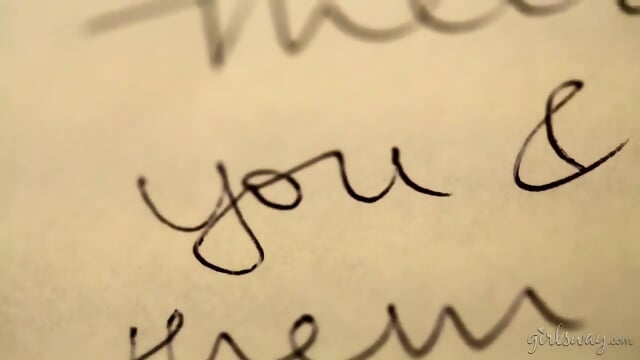 you &
them
girlsway.com